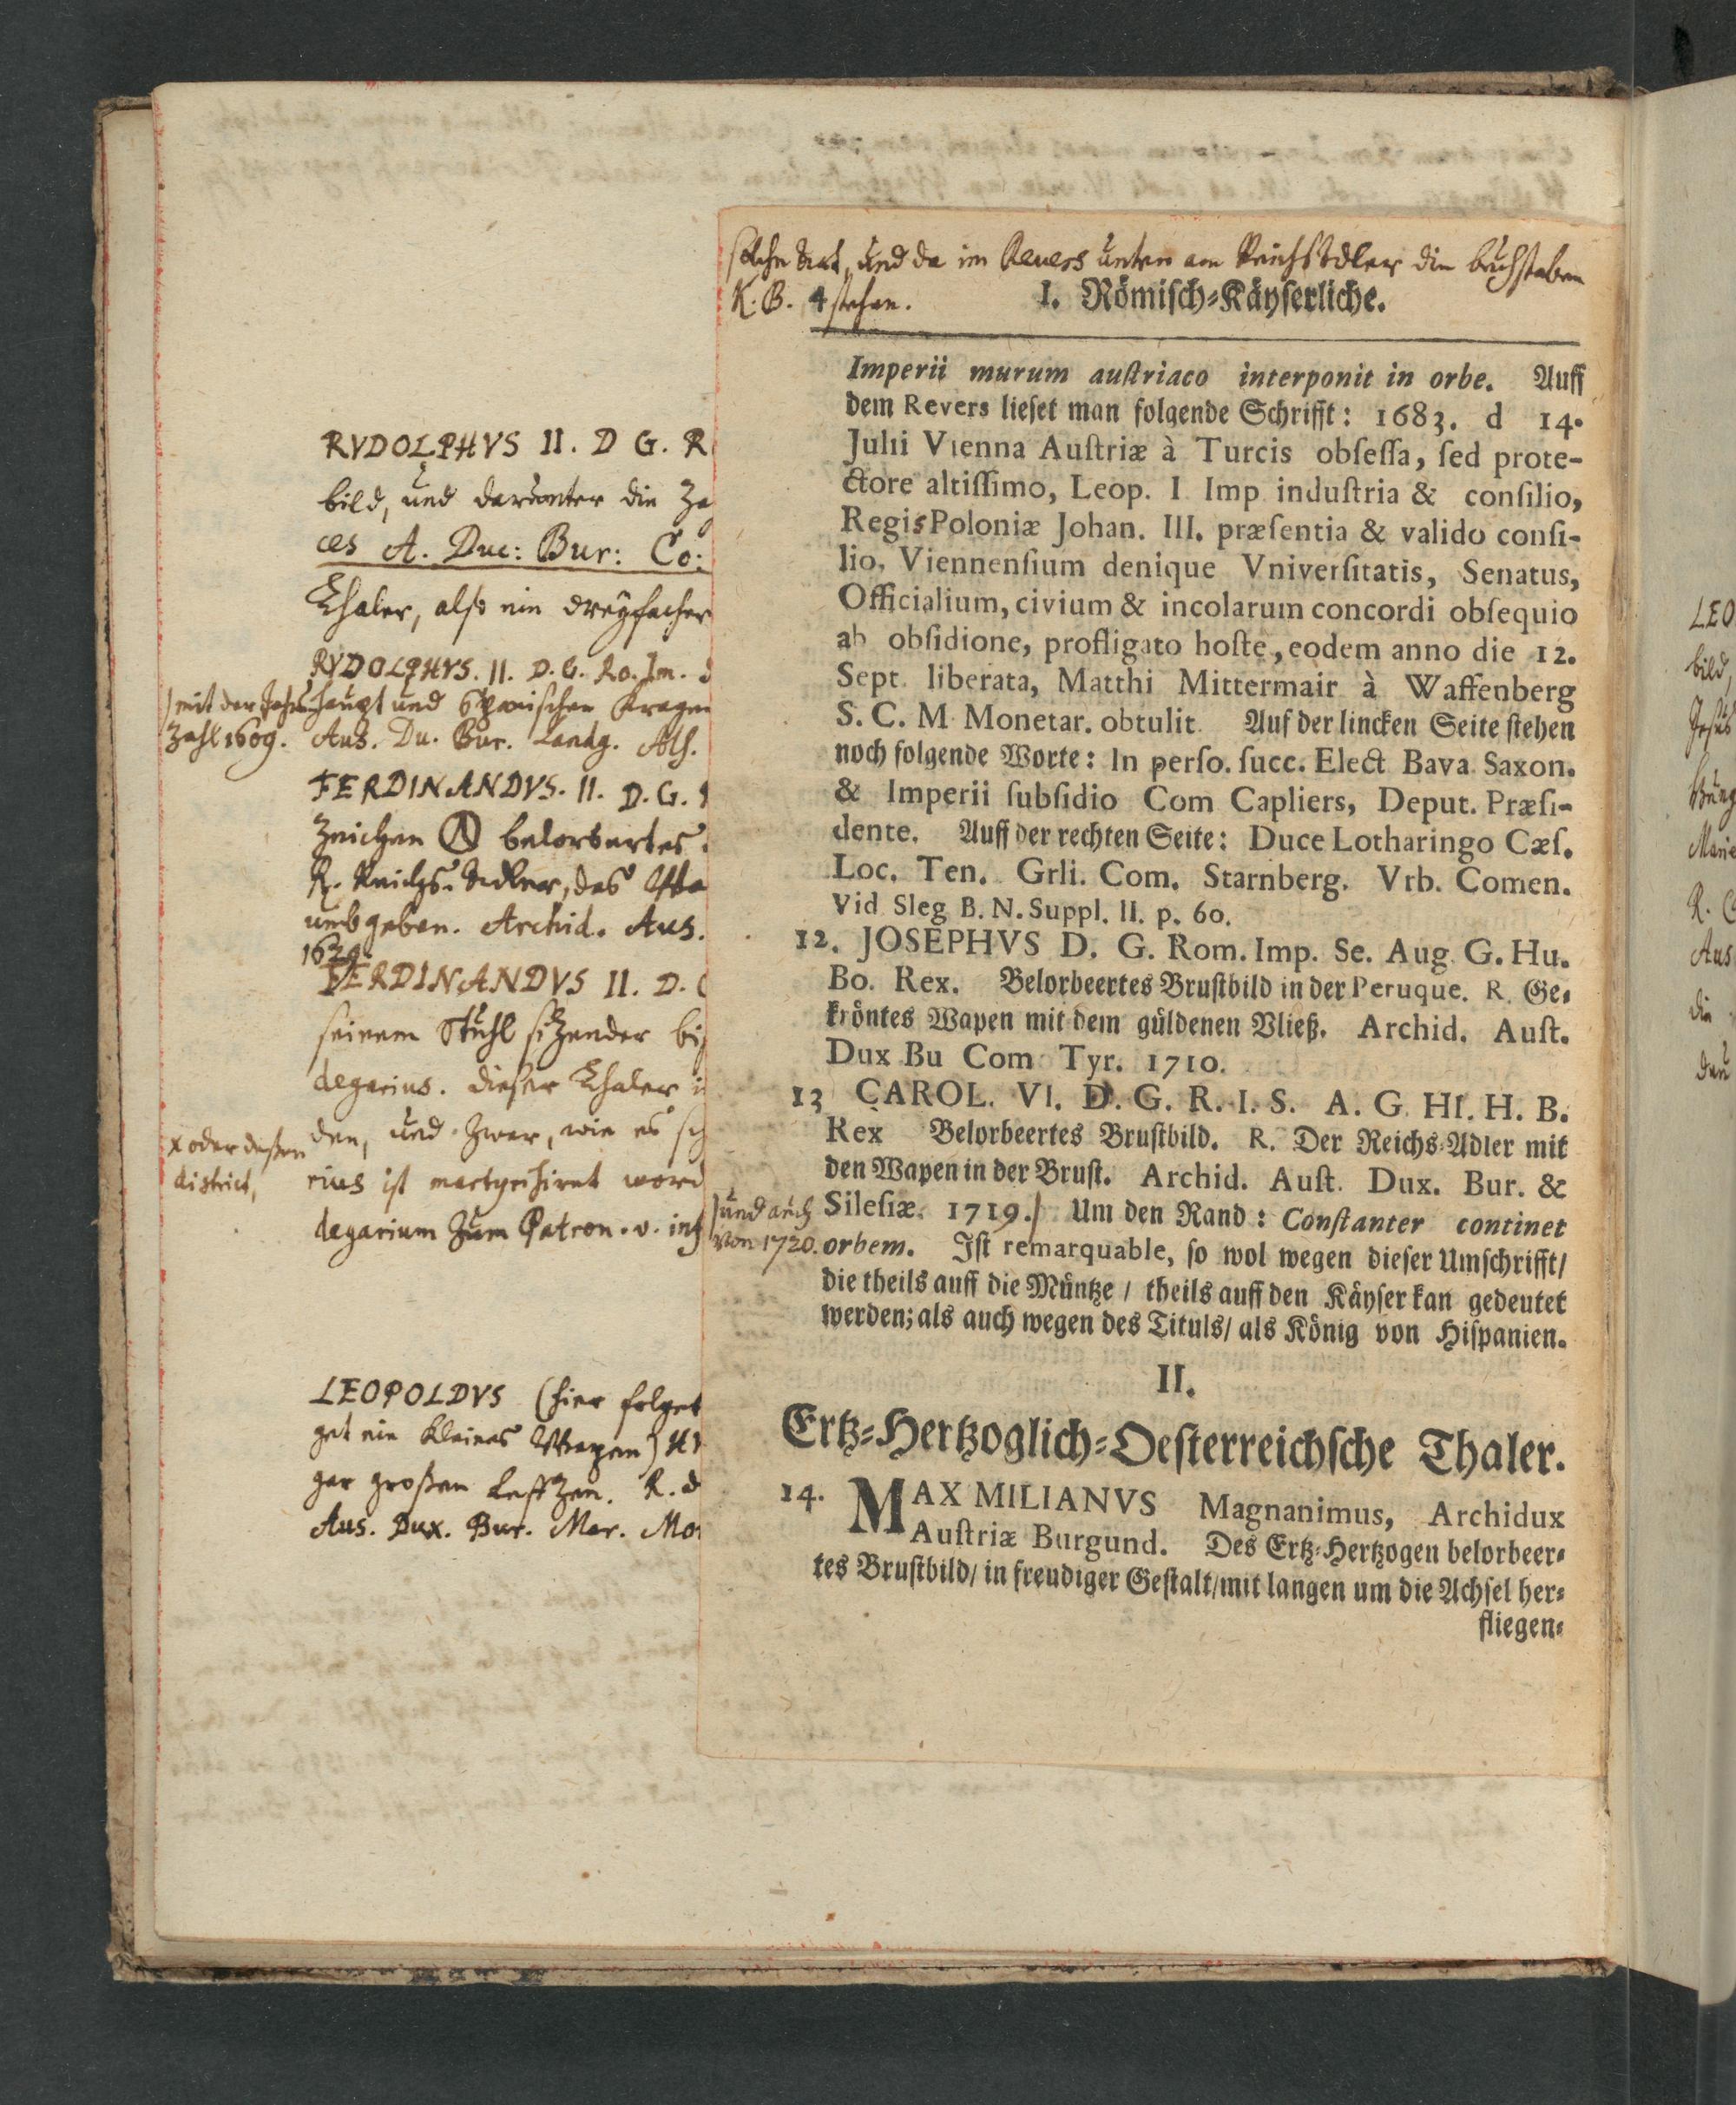 RVDOLPHVS II. D G. R
bild, und darunter die Za
ces A. Duc: Bur: Co:
Thaler, also ein dreyfacher
RVDOLPHVS. II. D. G. Ro. Im.
haupt und Spanischen Kragen
Aus. Du. Bur. Landg. Als.
) mit der Jahr
Zahl 1609.
FERDINANDVS. II. D. G.
Zeichen (A) belorbertes
R. Reichs-Adler, das
umbgeben. Archid. Aus.
1629.
FERDINANDVS II. D.
seinem Stuhl sitzender bi
degarius. dieser Thaler i
den, und zwar, wie es sch
rius ist martyrisiret word
degarium zum Patron. v.
x oder deßen
district,
LEOPOLDVS (hier folget
get ein kleines Wapen)
gar großen Leffzen. R. d
Aus. Dux. Bur. Mar. Mo
solche Art, und da im Revers unten am Reichs Adler die buchstaben
K. B. stehen.
4 I. Römisch-Käyserliche.
Imperii murum auſtriaco interponit in orbe. Auff
dem Revers lieſet man folgende Schrifft: 1683. d 14.
Julii Vienna Auſtriæ à Turcis obſeſſa, ſed prote-
ctore altiſſimo, Leop. I Imp induſtria & conſilio,
Regis Poloniæ Johan. III. præſentia & valido conſi-
lio, Viennenſium denique Vniverſitatis, Senatus,
Officialium, civium & incolarum concordi obſequio
ab obſidione, profligato hoſte, eodem anno die 12.
Sept. liberata, Matthi Mittermair à Waffenberg
S. C. M Monetar. obtulit. Auf der lincken Seite ſtehen
noch folgende Worte: In perſo. ſucc. Elect Bava. Saxon.
& Imperii ſubſidio Com Capliers, Deput. Præſi-
dente. Auff der rechten Seite: Duce Lotharingo Cæſ.
Loc. Ten. Grli. Com. Starnberg. Vrb. Comen.
Vid Sleg B. N. Suppl. II. p. 60.
12. JOSEPHVS D. G. Rom. Imp. Se. Aug. G. Hu.
Bo. Rex. Belorbeertes Bruſtbild in der Peruque. R. Ge-
kröntes Wapen mit dem güldenen Vließ. Archid. Auſt.
Dux Bu Com Tyr. 1710.
13 CAROL. VI. D. G. R. I. S. A. G. HI. H. B.
Rex Belorbeertes Bruſtbild. R. Der Reichs-Adler mit
den Wapen in der Bruſt. Archid. Auſt. Dux. Bur. &
Sileſiæ. 1719.) Um den Rand: Conſtanter continet
) und auch
von 1720.
orbem. Iſt remarquable, ſo wol wegen dieſer Umſchrifft/
die theils auff die Müntze / theils auff den Käyſer kan gedeutet
werden; als auch wegen des Tituls/ als König von Hiſpanien.
II.
Ertz-Hertzoglich-Oeſterreichſche Thaler.
14. MAX MILIANVS Magnanimus, Archidux
Auſtriæ Burgund. Des Ertz-Hertzogen belorbeer-
tes Bruſtbild/ in freudiger Geſtalt/ mit langen um die Achſel her-
fliegen-
LEO
bild,
Jesus
Mari
R.
Aus
die